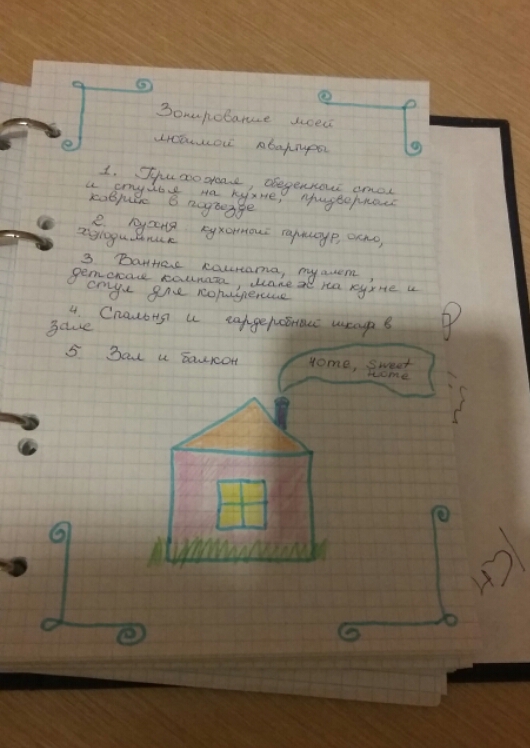 Зонирование моей
любимой квартиры
1. Прихожая, обеденный стол
и стулья на кухне, придверный
коврик в подъезде
2. Кухня кухонный гарнитур, окно,
холодильник
3. Ванная комната, туалет,
детская комната, манеж на кухне и
стул для кормления
4. Спальня и гардеробный шкаф в
зале
5 Зал и балкон
HOME, SWEET
HOME